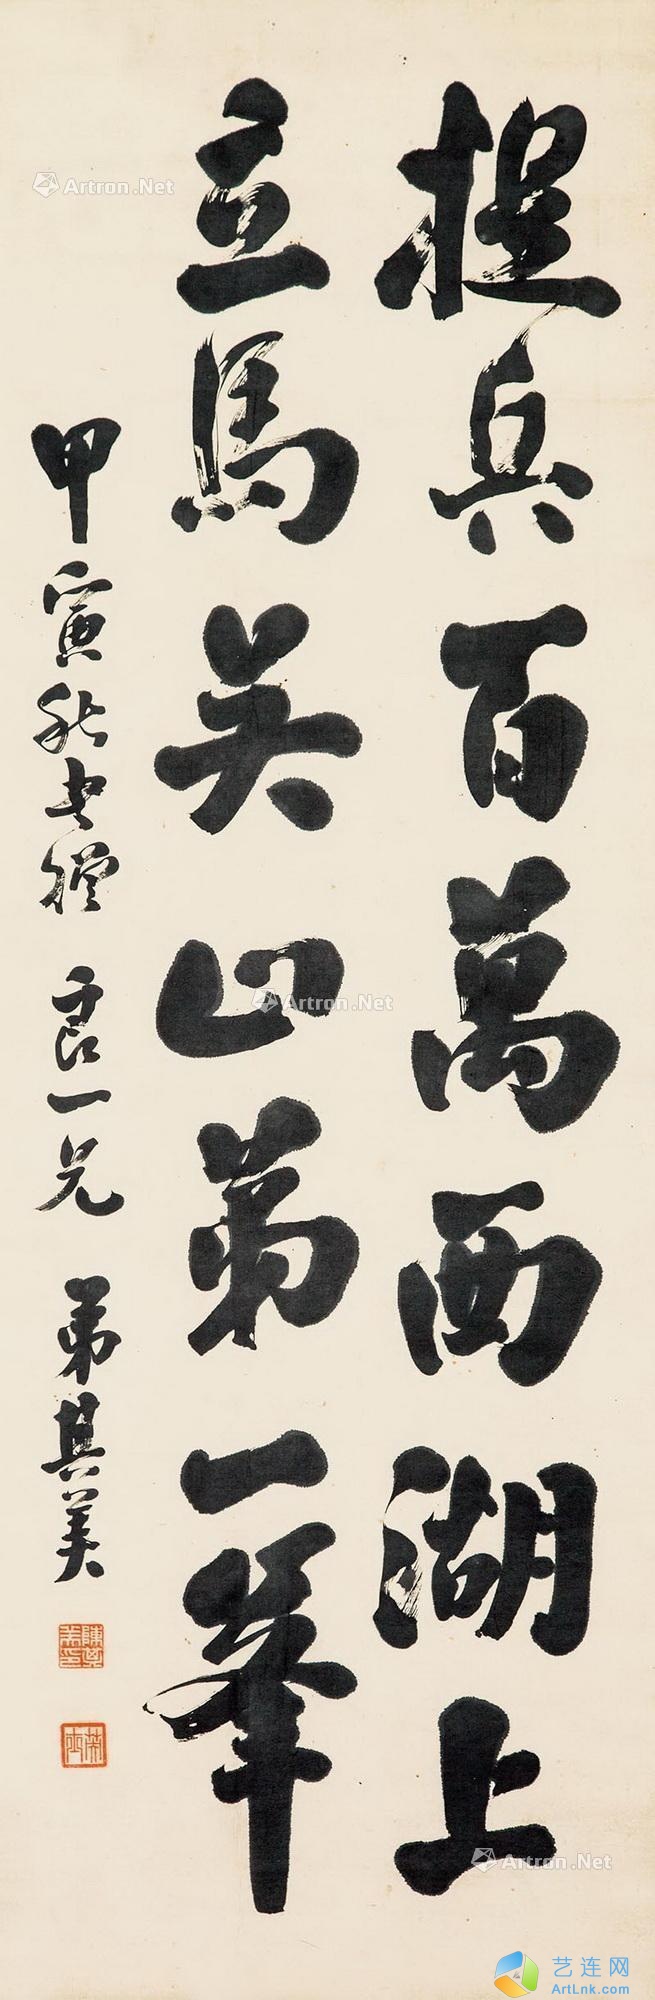 提兵百萬西湖上
立馬吴山第一峯
甲寅秋書撜 良一兄 弟其美
陳其美印
英士
Artron.Net
Artron.Net
Artron.Net
艺连网
ArtLnk.com